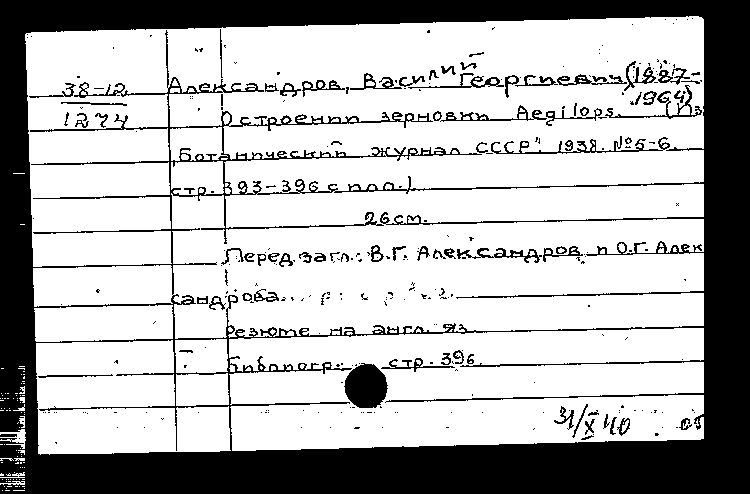 38-12 Александров, Василий Георгиевич (1887-
1964)
1274 О строении зерновки Aegilops. (Из
„Ботанический журнал СССР". 1938. №5-6.
стр. 393-396 с илл.)
26 см.
Перед загл.: В.Г. Александров и О.Г. Алек
сандрова.
Резюме на англ. яз.
Библиогр.: стр. 396.
31/X 40 05